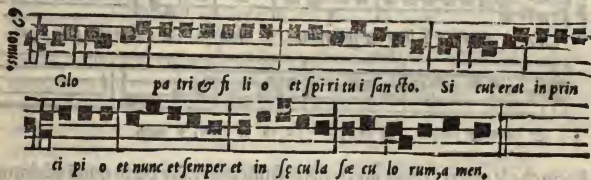 Glo patri & fi li o et ſpiri tu i ſan cto. Si cut erat in prin
ci pi o et nunc et ſemper et in ſę cu la ſæ cu lo rum, a men.